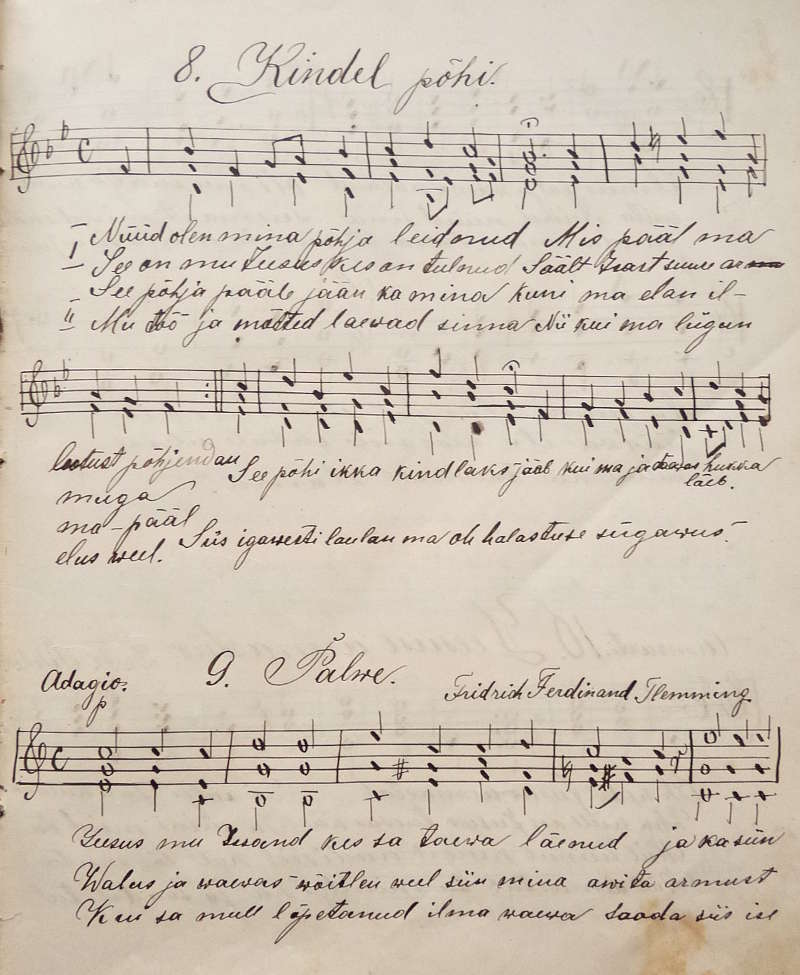 8. Kindel põhi.
I Nüüd olen mina põhja leidnud Mis pääl ma
See on mu Jeesus kes on tulnud Säält Isast suure arm
See põhja pääle jään ka mina kuni ma elan il-
II Mu töö ja mõtted laewad sinna Nii kui ma liigun
lootust põhjendan See põhi ikka kindlaks jääb kui ma ja taewas hukka
läeb.
muga
ma-pääl
elus weel. Siis igawesti laulan ma oh halastuse sügawus.
9. Palwe.
Adagio.
p
Fridrich Ferdinand Flemming
Jeesus mu Issand kes sa taewa läenud ja ka siin
Walus ja waewas wõitlen weel siin mina awita armust
Kui sa mull lõpetanud ilma waewa saada siis ise